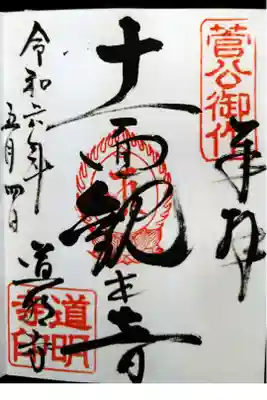 菅公御作
奉拝
十一面観世音
道明寺
令和六年
五月四日
道明寺印